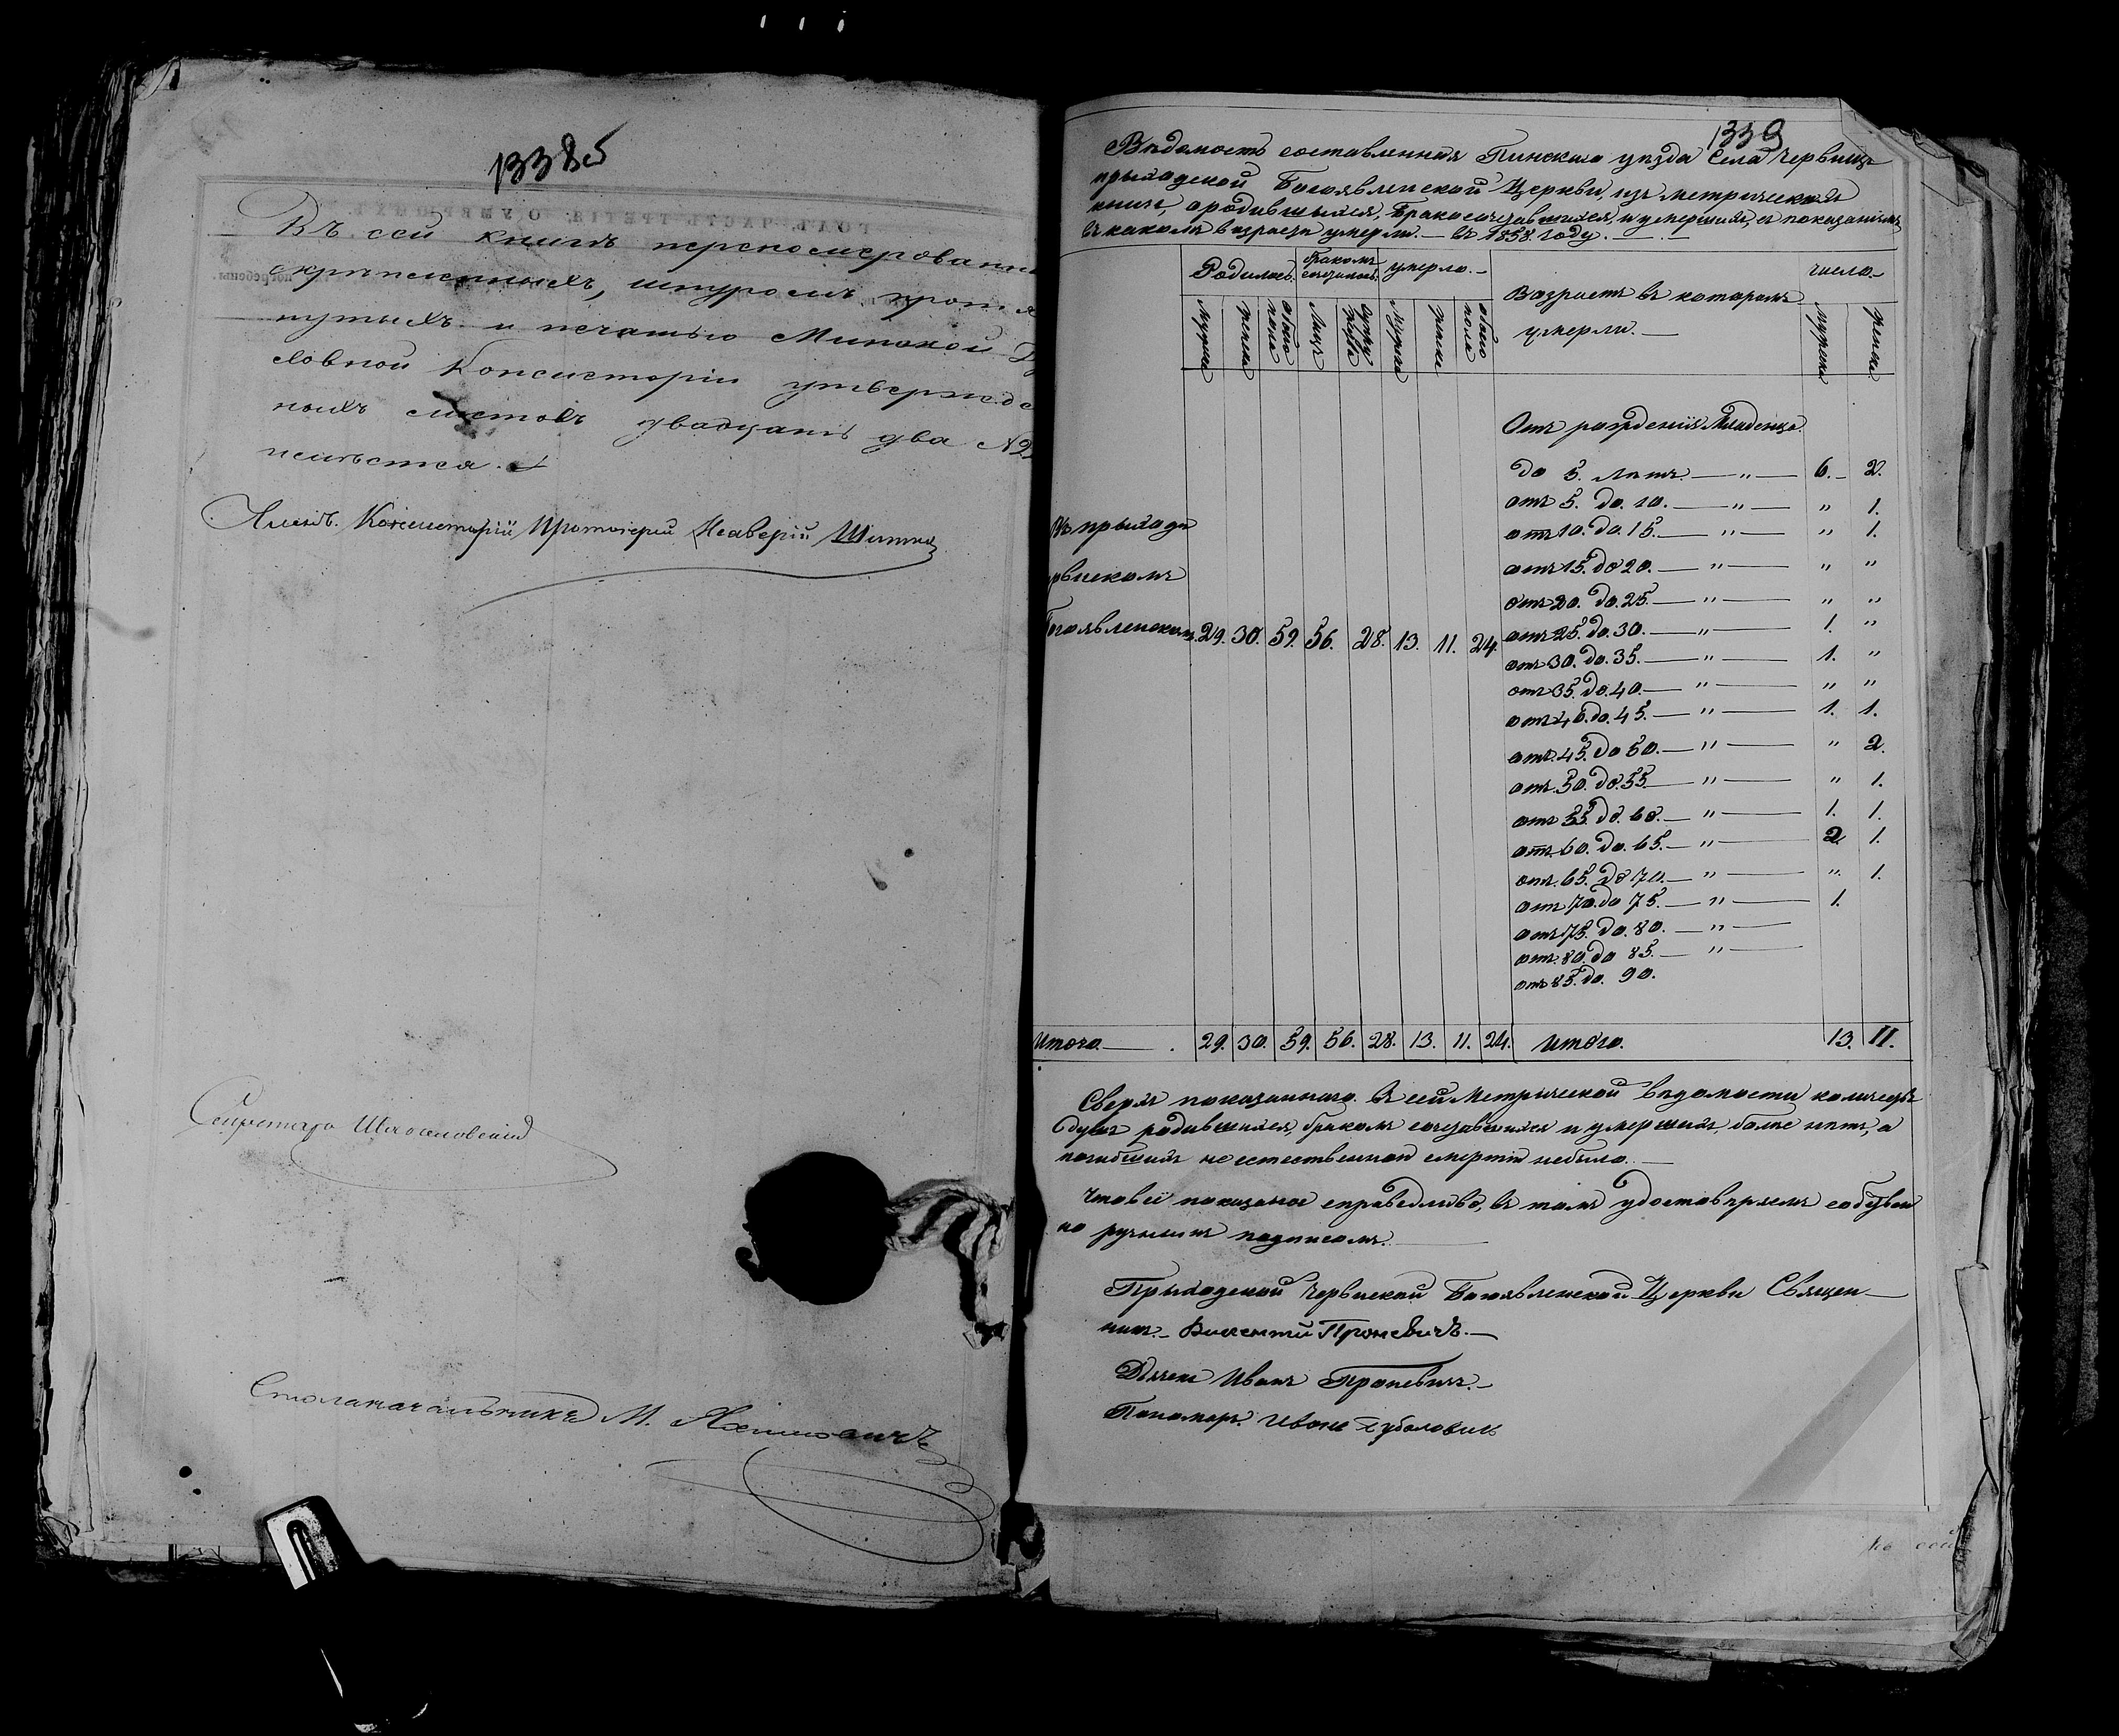 13385
Въ сей книгѣ перенумерован
скрѣпленныхъ, шнуромъ протя
нутыхъ и печатью Минской Ду
ховной Консисторіи утвержде
ныхъ листовъ двадцать два №22
числится.
Членъ Консисторіи Протоіерей
Секретарь
Столоначальникъ М.
1339
Вѣдомость составленная Пинскаго уѣзда Села Червищъ
прыходской Богоявленской Церкви, изъ метрической
книги, ородившыхся, бракосочетавшихся, и умершихъ, съ показаніемъ
въ какомъ возрастѣ умерли. — въ 1858. году. —
Родилось. бракомъ сочетались умерло. — Возрастъ въ которомъ умерли. — число —
мужеска женска обоего пола Лицъ мужеска женска обоего пола мужеска женска
Отъ рожденія Младенцо
до 5. лѣтъ. — „ — 6. — 2.
отъ 5. до. 10. — „ — „ 1.
отъ 10. до. 15. — „ — „ 1.
отъ 15. до 20. — „ — „ „
отъ 20. до. 25. — „ — „ „
отъ 25. до. 30. — „ — 1. „
отъ 30. до. 35. — „ — 1. „
отъ 35. до. 40. — „ — „ „
отъ 40. до. 45. — „ — 1. 1.
отъ. 45. до 50. — „ — „ 2.
отъ. 50. до. 55. — „ — „ 1.
отъ 55. до. 60. — „ — 1. 1.
отъ. 60. до. 65. — „ — 2 1.
отъ. 65. до 70. — „ — „ 1.
отъ 70. до 75. — „ — 1.
отъ 75. до. 80. — „ —
отъ. 80. до 85. — „ —
отъ 85. до. 90.
въ прыходѣ
рвискомъ
Богоявленскомъ. 29. 30. 59. 56. 28. 13. 11. 24.
Итого — 29. 30. 59. 56. 28. 13. 11. 24. Итого. 13. 11.
Сверхъ показаннаго въ сей Метрической вѣдомости количества
душъ родившихся, бракомъ сочетавшихся и умершихъ, болѣе нѣтъ, а
погибшихъ неестественной смертію небыло. —
Что въ ней показаное справедливо, въ томъ удостовѣряемъ собствен
но ручнымъ подписомъ. —
Прыходской Червиской Богоявленской Церкви Священ—
никъ — Викентій Проневичъ. —
Дьячекъ Иванъ Проневичъ. —
Пономарь. Иванъ